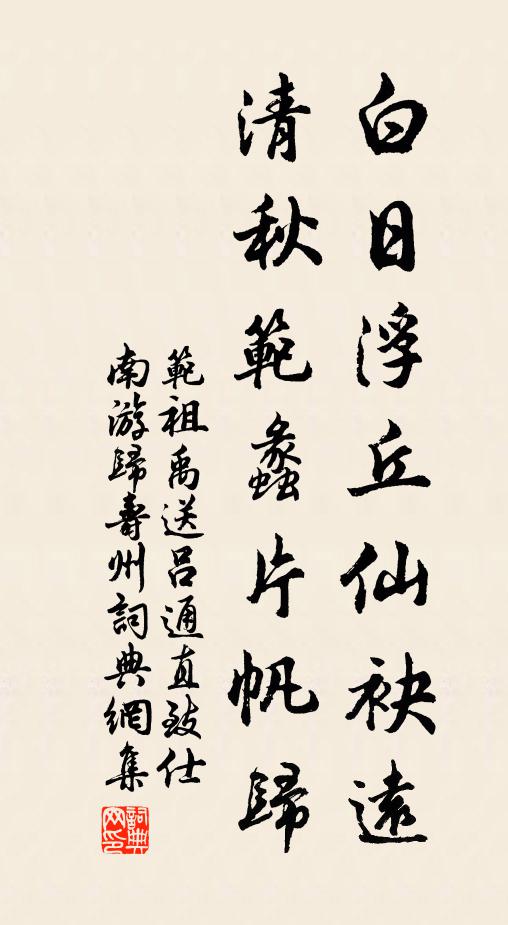 白日浮丘仙袂遠
清秋範蠡片帆歸
範祖禹送呂通直致仕
南游歸壽州詞典網集
詞典
网印